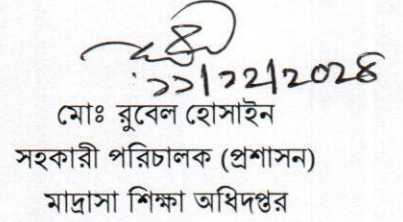 ১১/১২/২০২৪
মোঃ রুবেল হোসাইন
সহকারী পরিচালক (প্রশাসন)
মাদ্রাসা শিক্ষা অধিদপ্তর